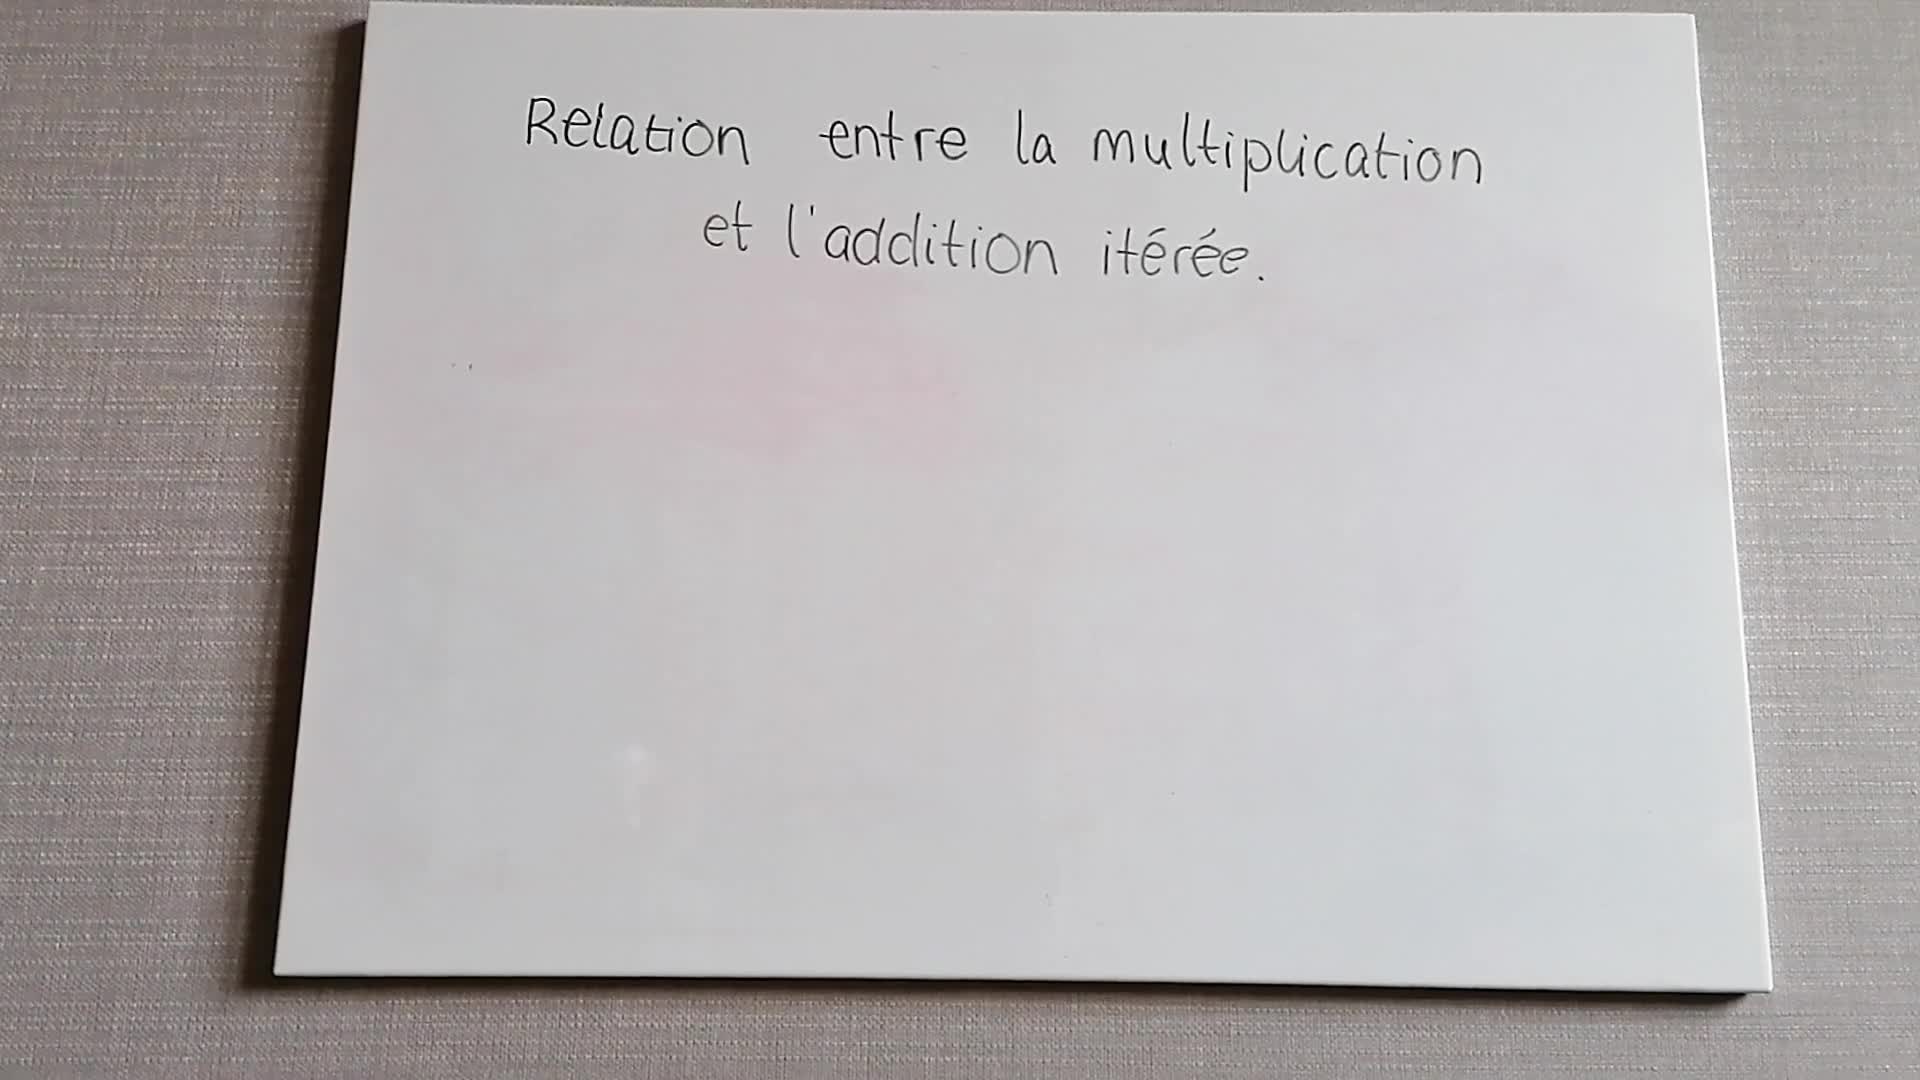 Relation entre la multiplication
et l'addition itérée.